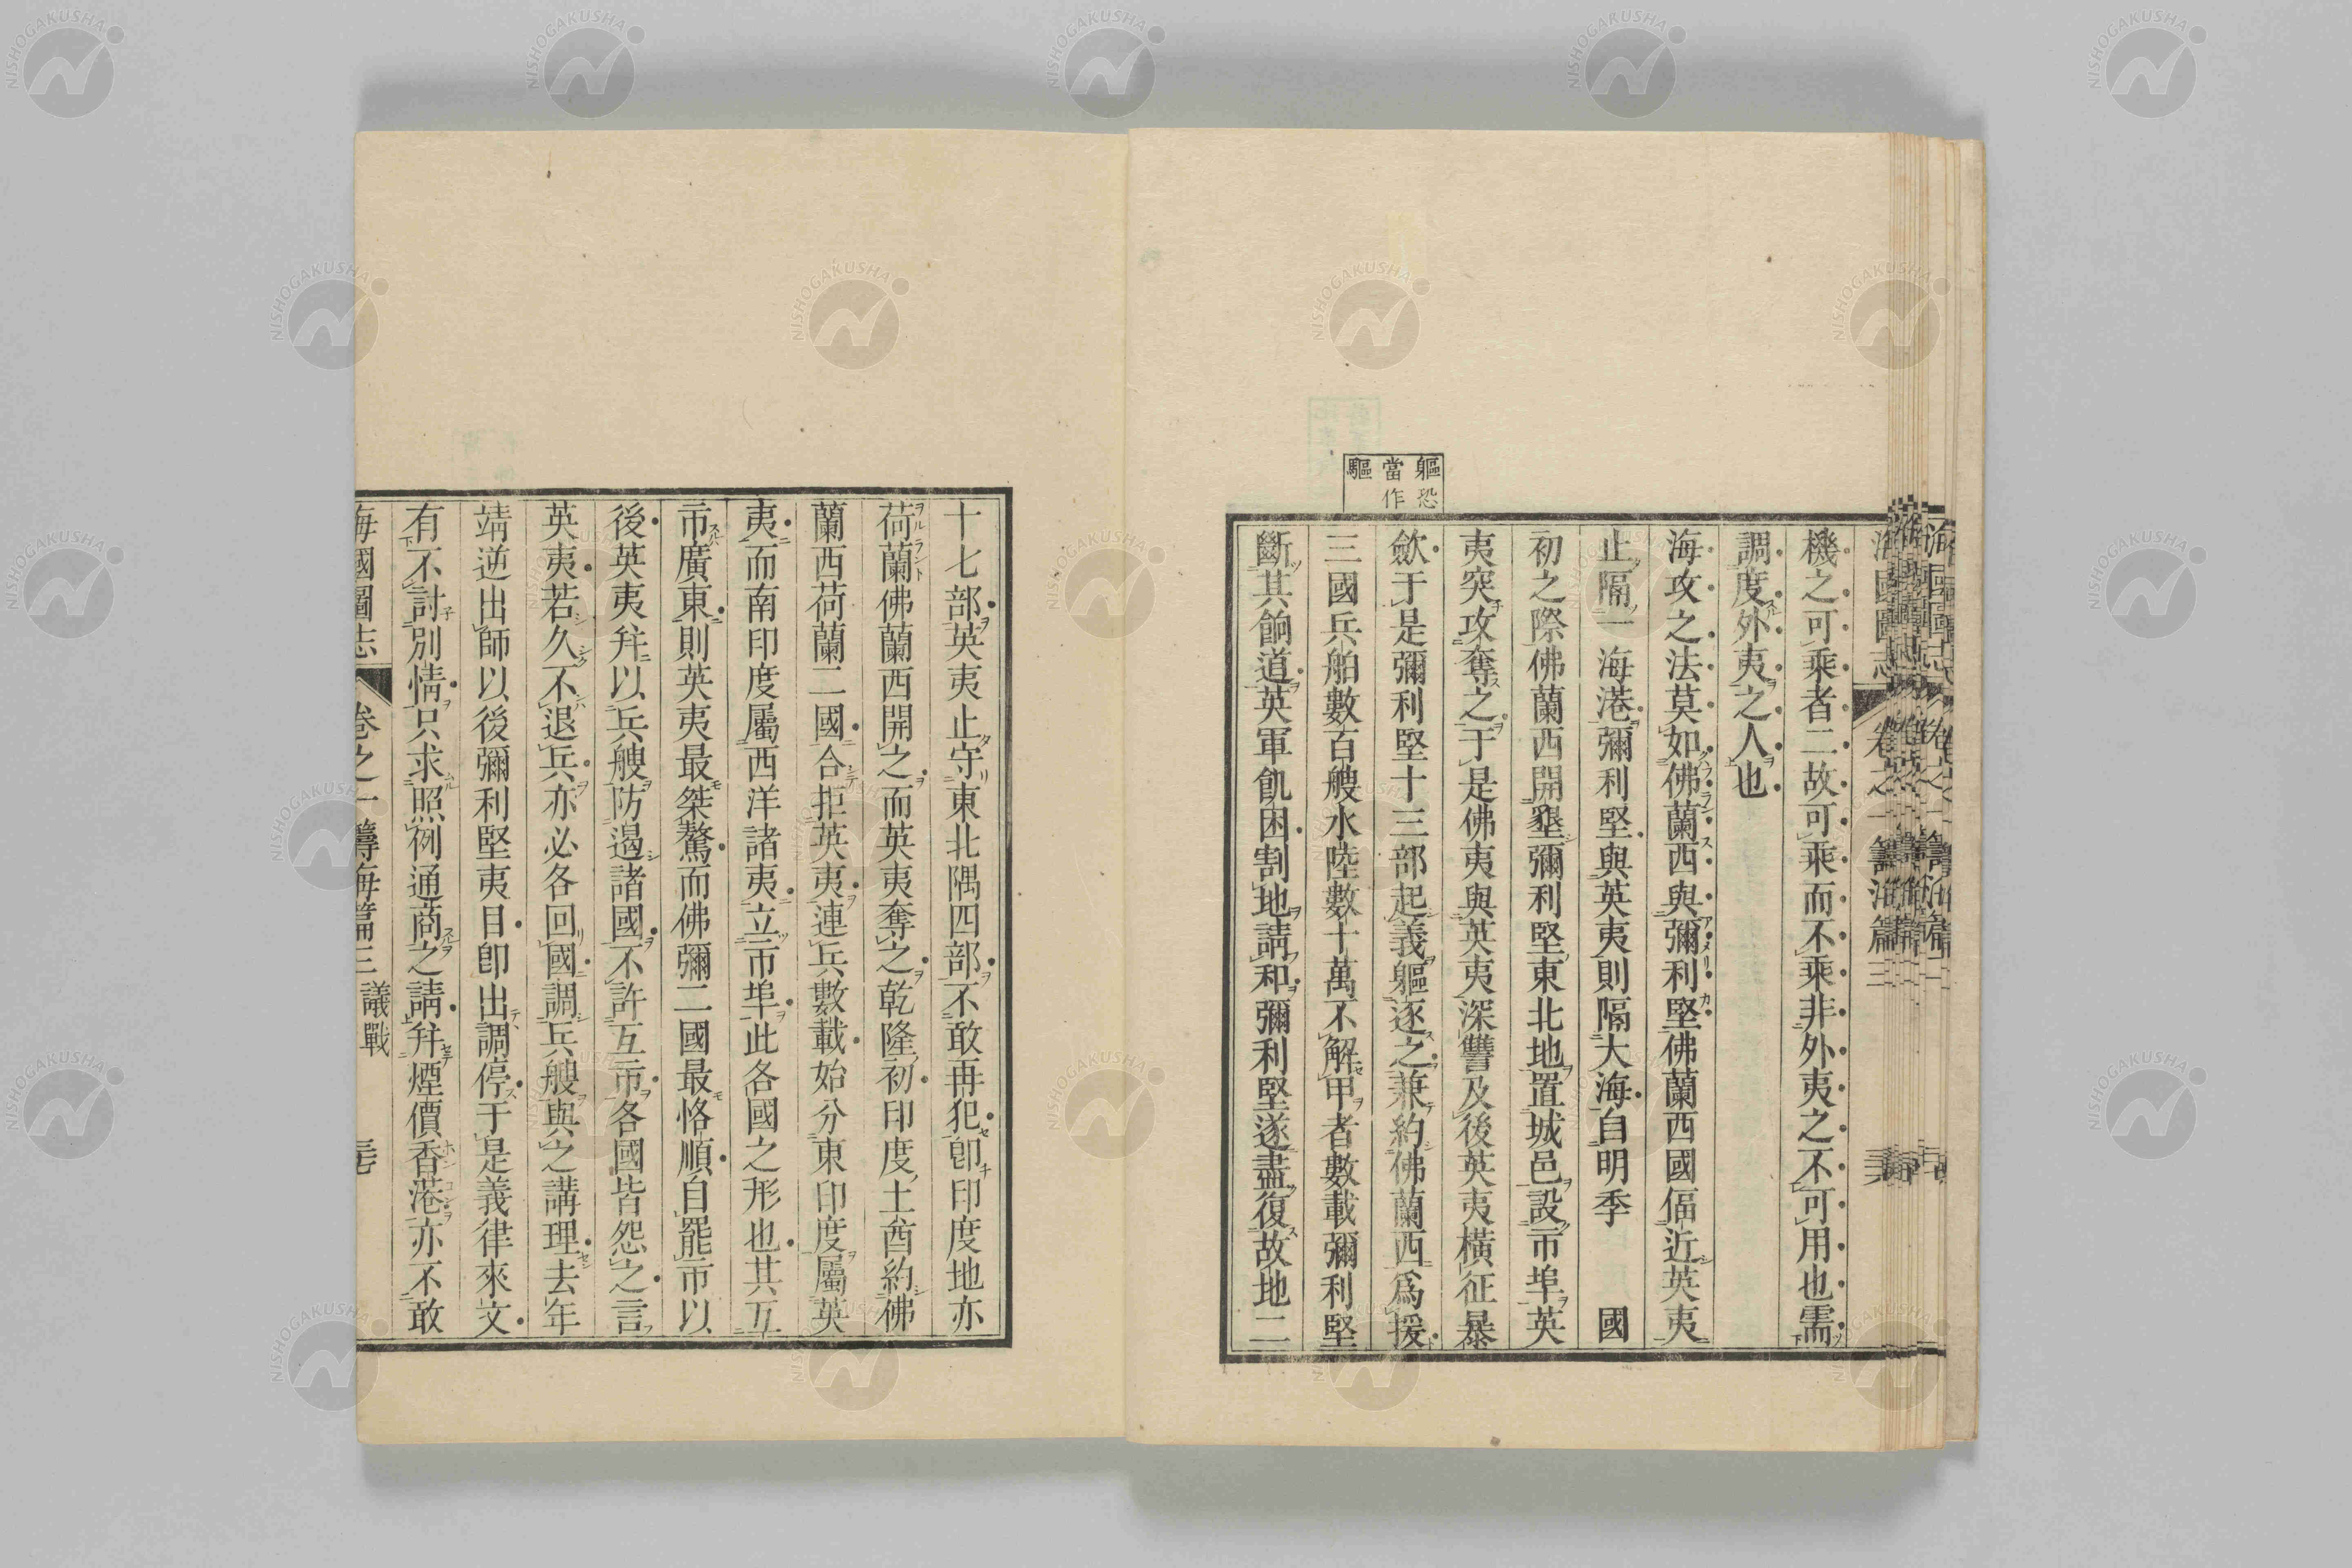 海國圖志 卷之一 籌海篇三
機之可乘者二故可乘而不乘非外夷之不可用也需
調度外夷之人也
海攻之法莫如佛蘭西與彌利堅佛蘭西國偪近英夷
止隔一海港彌利堅與英夷則隔大海自明季 國
初之際佛蘭西開墾彌利堅東北地置城邑設市埠英
夷突攻奪之于是佛夷與英夷深讐及後英夷橫征暴
歛于是彌利堅十三部起義軀逐之兼約佛蘭西爲援
三國兵舶數百艘水陸數十萬不解甲者數載彌利堅
斷其餉道英軍飢困割地請和彌利堅遂盡復故地二
軀恐
當作
驅
十七部英夷止守東北隅四部不敢再犯卽印度地亦
荷蘭佛蘭西開之而英夷奪之乾隆初印度土酋約佛
蘭西荷蘭二國合拒英夷連兵數載始分東印度屬英
夷而南印度屬西洋諸夷立市埠此各國之形也其互
市廣東則英夷最桀驁而佛彌二國最恪順自罷市以
後英夷幷以兵艘防遏諸國不許互市各國皆怨之言
英夷若久不退兵亦必各回國調兵艘與之講理去年
靖逆出師以後彌利堅夷目卽出調停于是義律來文
有不討別情只求照例通商之請幷煙價香港亦不敢
海國圖志 卷之一 籌海篇三 議戰
NISHOGAKUSHA